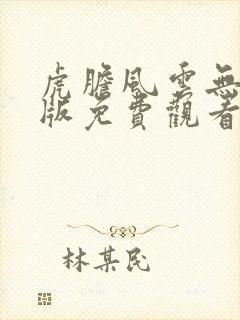 虎膽風雲無
版免費觀看
林某民